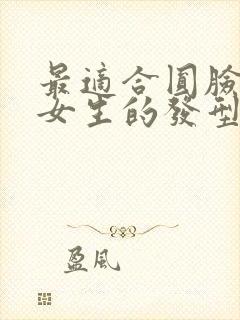 最適合圓臉
女生的發型
盈風